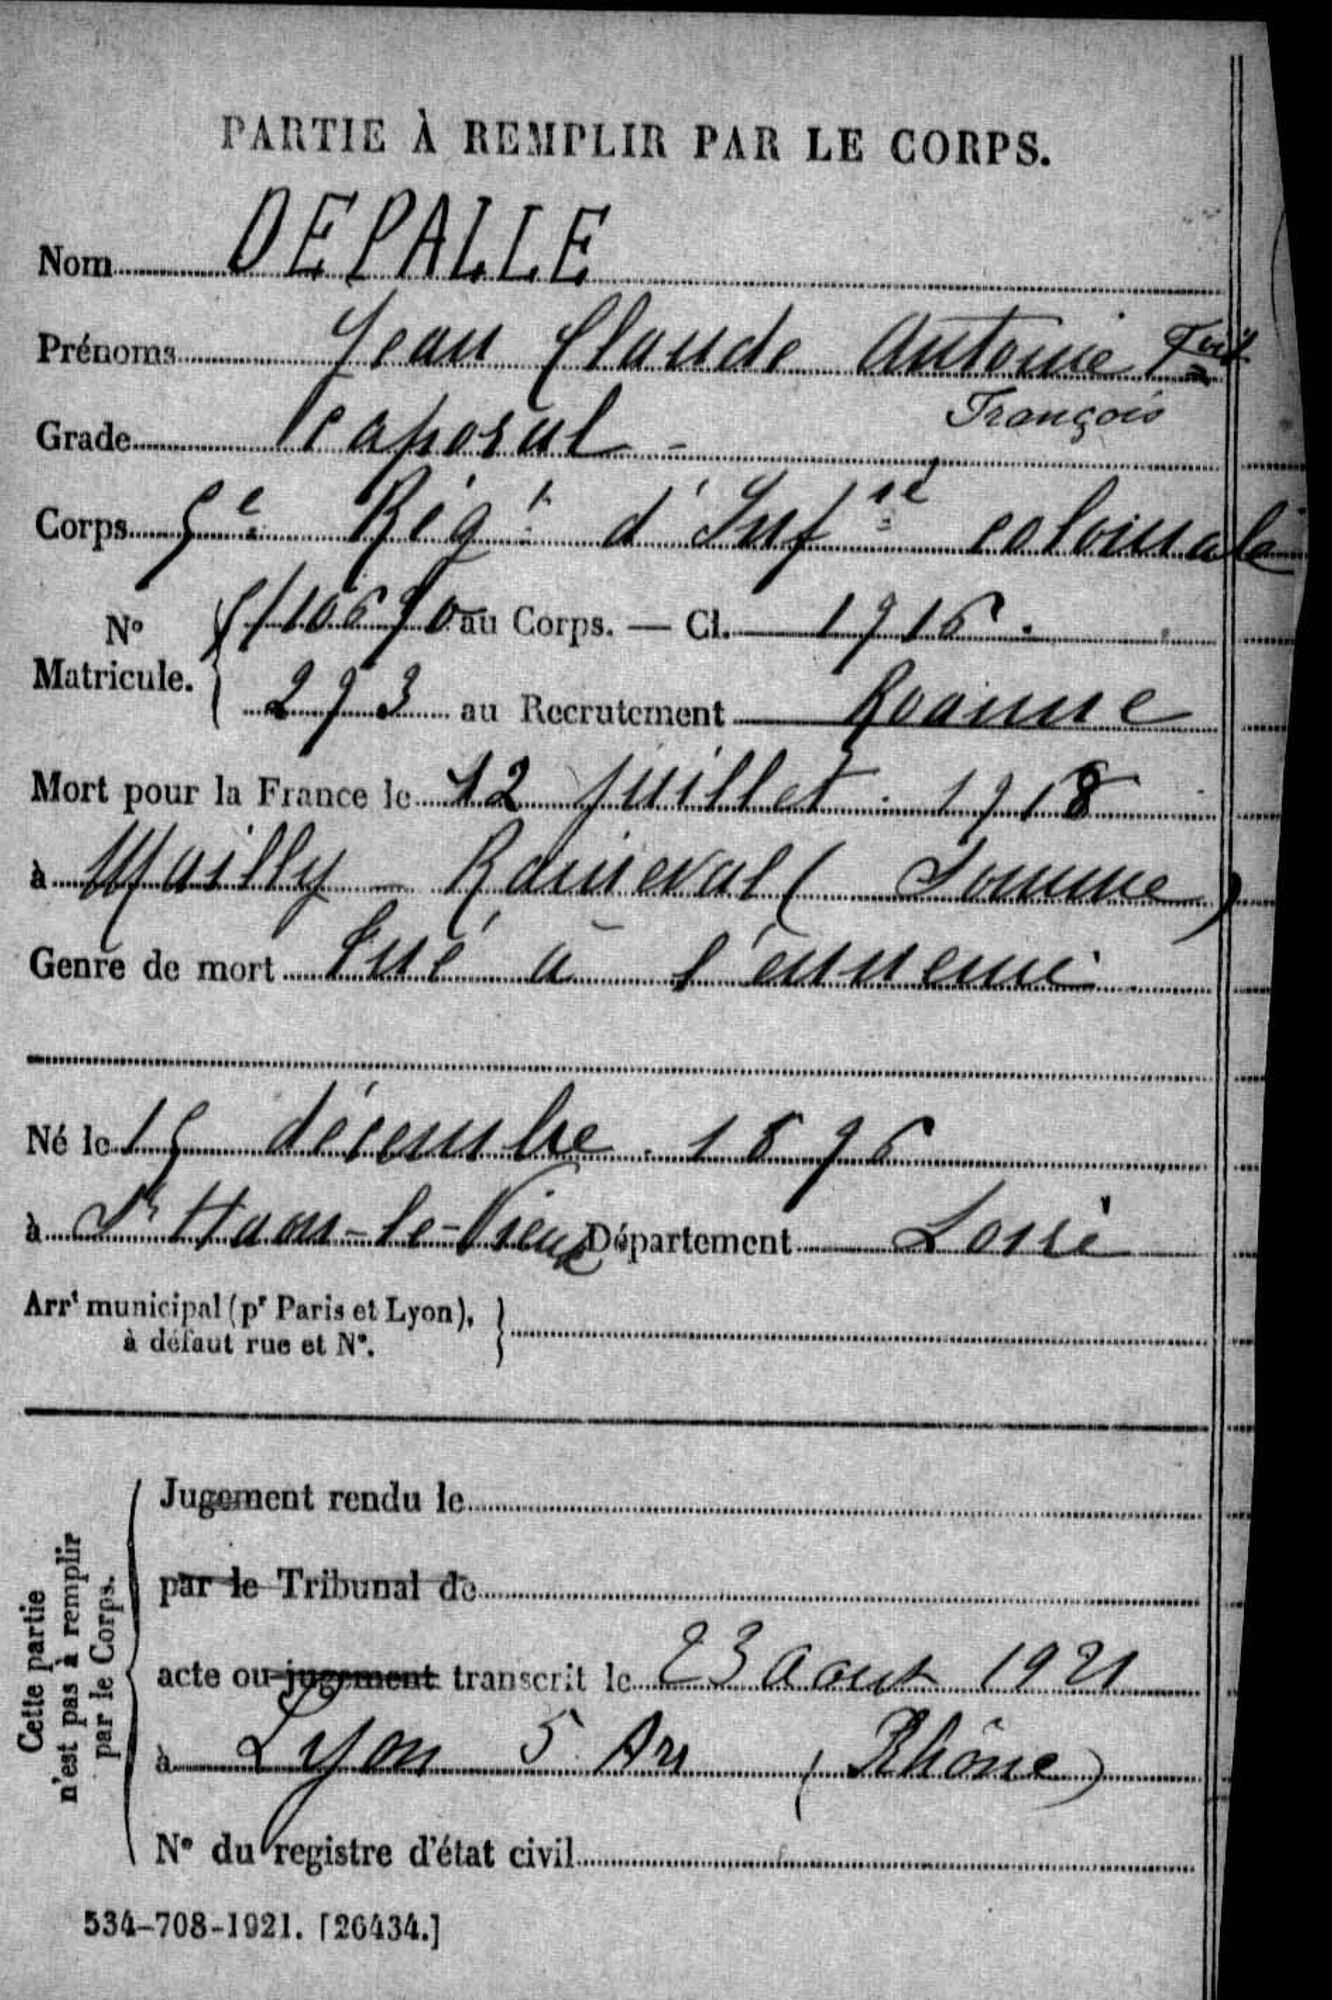 PARTIE À REMPLIR PAR LE CORPS.
Nom DEPALLE
Prénoms Jean Claude Antoine Fois
François
Grade Caporal -
Corps 5e Régt d'Infie coloniale
No Matricule. 5/10690 au Corps. — Cl. 1916.
293 au Recrutement Roanne
Mort pour la France le 12 juillet 1918
à Mailly - Raineval ( Somme )
Genre de mort Tué à l'ennemi
Né le 15 décembre 1896
à St Haon-le-Vieux Département Loire
Arrt municipal (pr Paris et Lyon),
à défaut rue et N°.
Cette partie
n'est pas à remplir
par le Corps.
Jugement rendu le
par le Tribunal de
acte ou jugement transcrit le 23 Aout 1921
à Lyon 5 Arr ( Rhône )
N° du registre d'état civil
534-708-1921. [26434.]